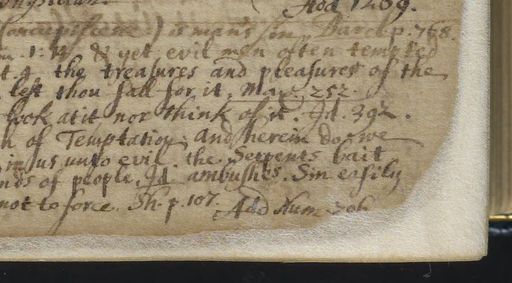 Add 1289.
(concupiscence) is mans sin, Barch p. 768.
& yet evil men often tempted
the treasures and pleasures of the
lest thou fall for it. Man. 252.
look at it nor think of it. Id. 392.
of Temptation, and herein do we
in us unto evil. the Serpents bait
nds of people. Id. ambushes. Sin easily
not to force. Sh. p. 107. Add Num. 206